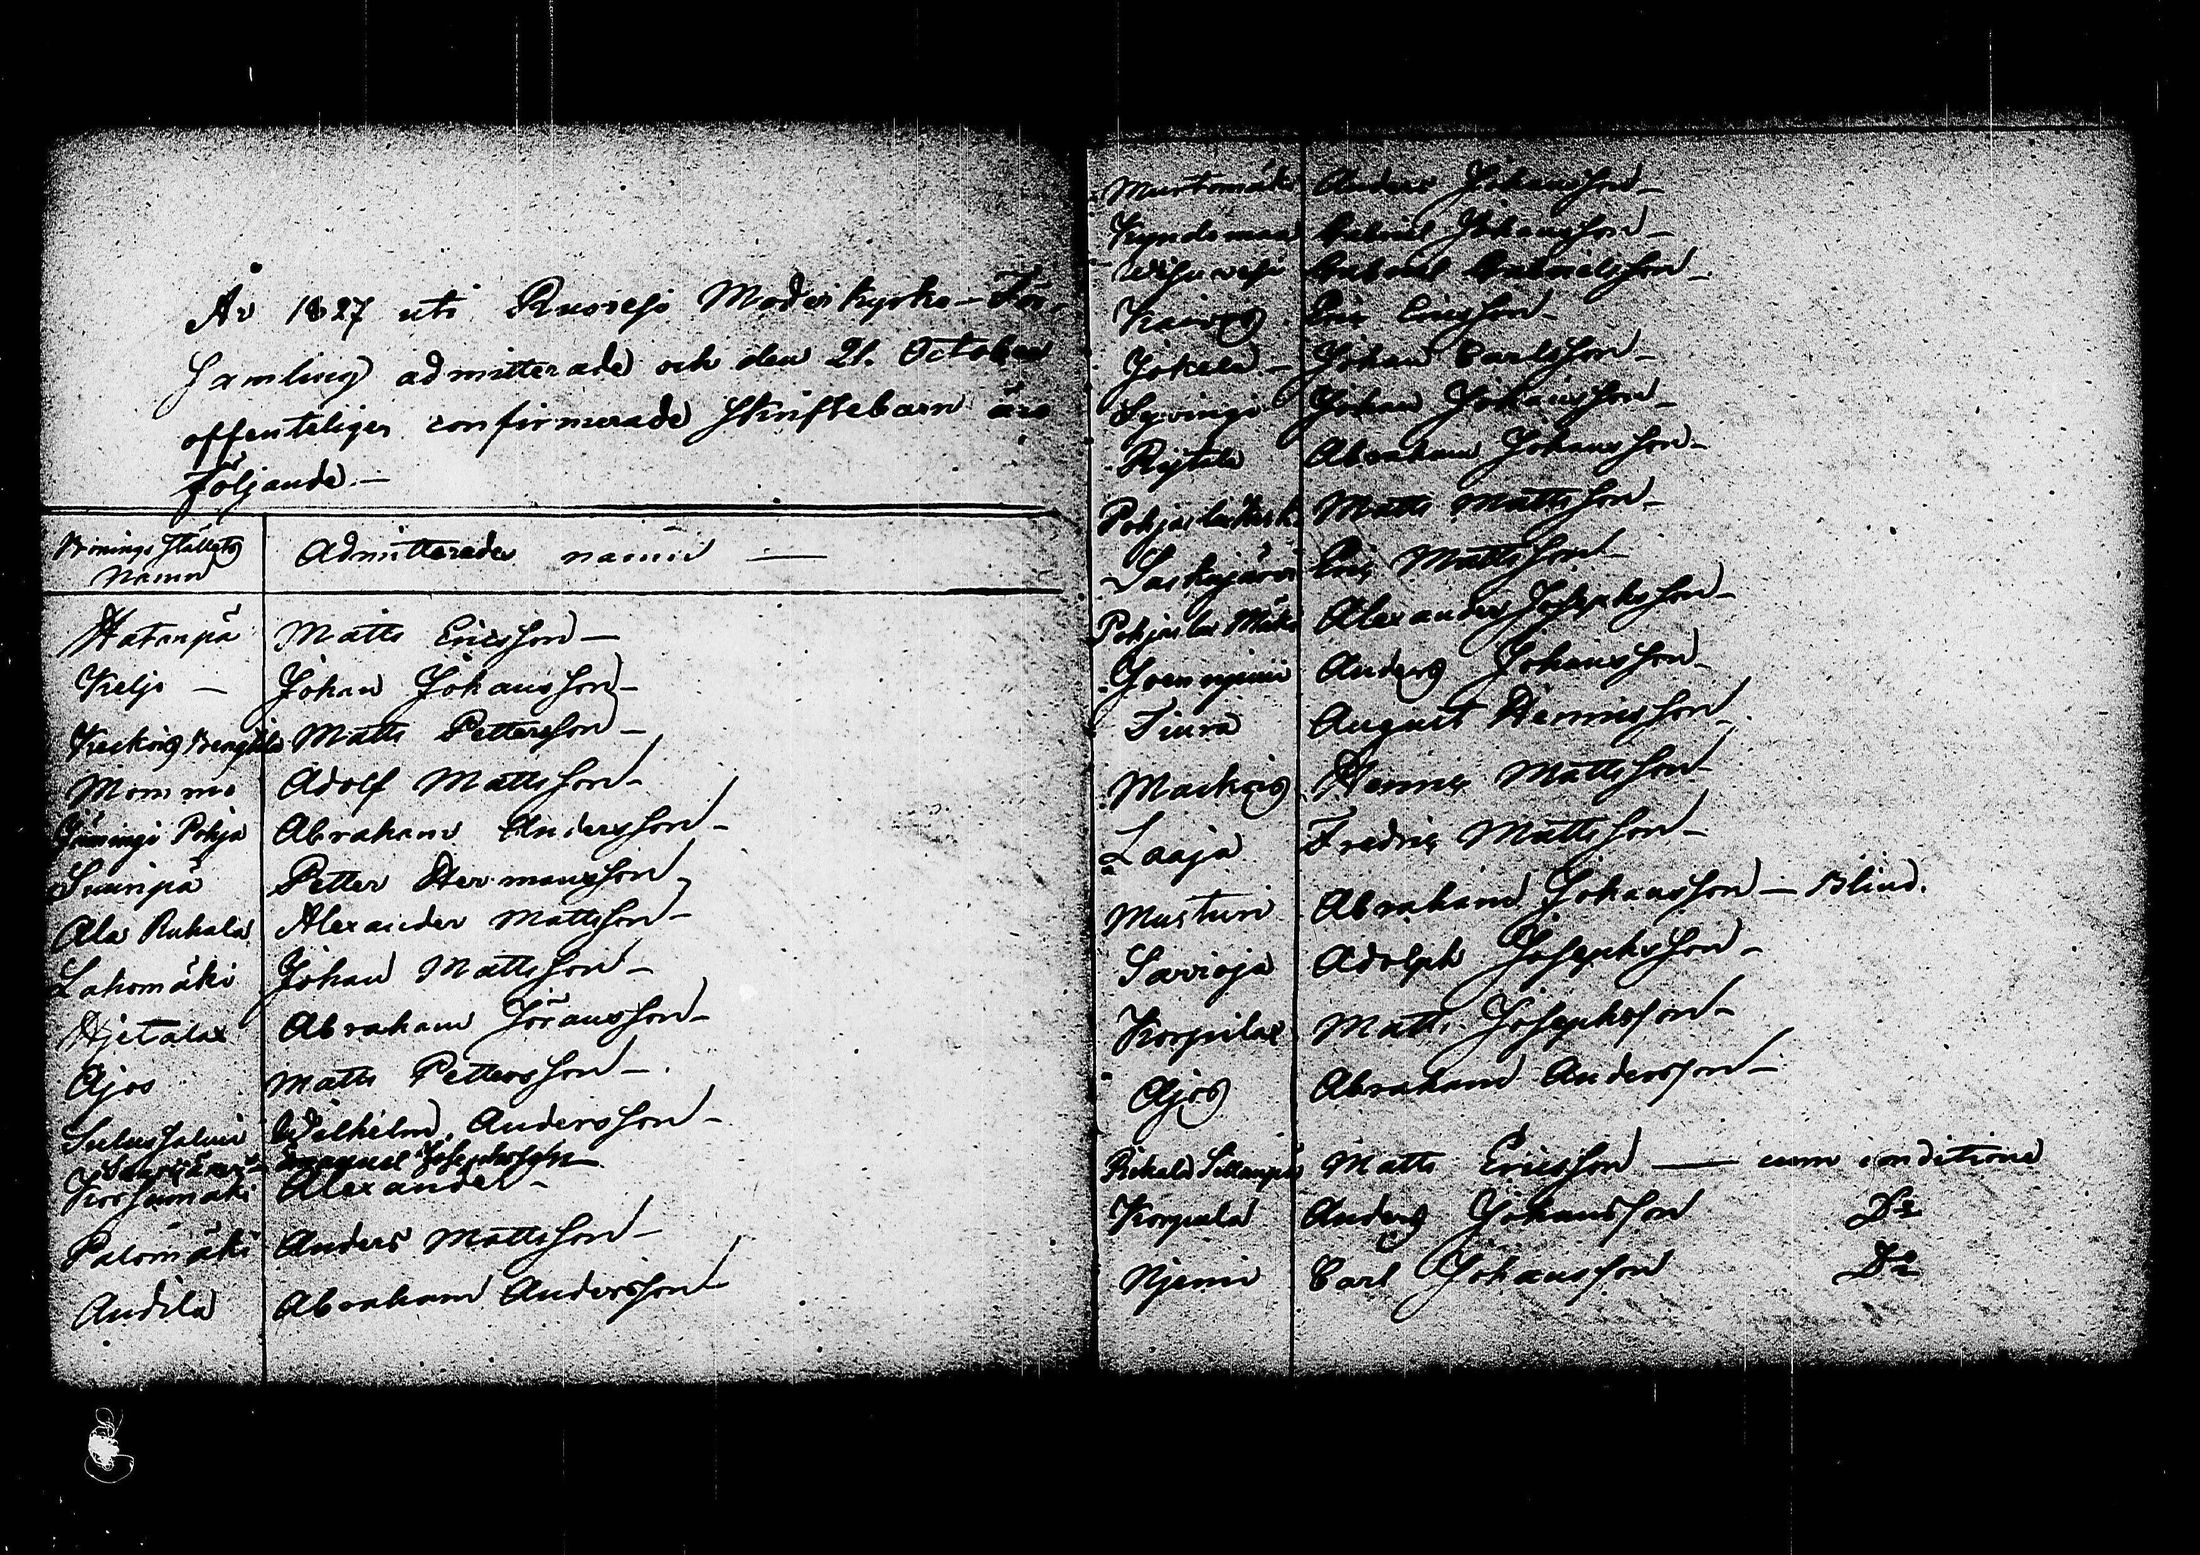 År 1827 uti Ruovesi Moderkyrko-För-
samling admitterade och den 21. October
offenteligen confirmerade Skriftebarn äro
följande.—
Boningsställets Namn Admitterades namn —
Hatanpä Matts Ericsson —
Keljo — Johan Johansson —
Matts Pettersson —
Mommo Adolf Mattsson —
Jämingi Pohja Abraham Andersson —
Suuripä Petter Hermansson
Ala Ruhala Alexander Mattsson —
Lahomäki Johan Mattsson —
Hjetalax Abraham Jöransson —
Ajos Matts Pettersson —
Salussalmi Wilhelm Andersson —
Emanuel Josephsson
Alexander —
Palomäki Anders Mattsson —
Audila Abraham Andersson —
Mustomäki Anders Johansson —
Gabriel Johansson —
Wisuvesi Gabriel Gabrielsson —
Eric Ericsson —
Jokela — Johan Carlsson —
Syvingi Johan Johansson —
Abraham Johansson —
Matts Mattsson —
Eric Mattsson —
Pohjaslax Mäki Alexander Josephsson —
Joenniemi Anders Johansson —
Tiura August Henricsson
Henric Mattsson —
Laaja Fredric Mattsson —
Musturi Abraham Johansson — Blind.
Sarvioja Adolph Josephsson —
Korpilax Matts Josephsson —
Ajos Abraham Andersson —
Matts Ericsson — cum conditione
Korpula Anders Johansson Do
Njemi Carl Johansson Do